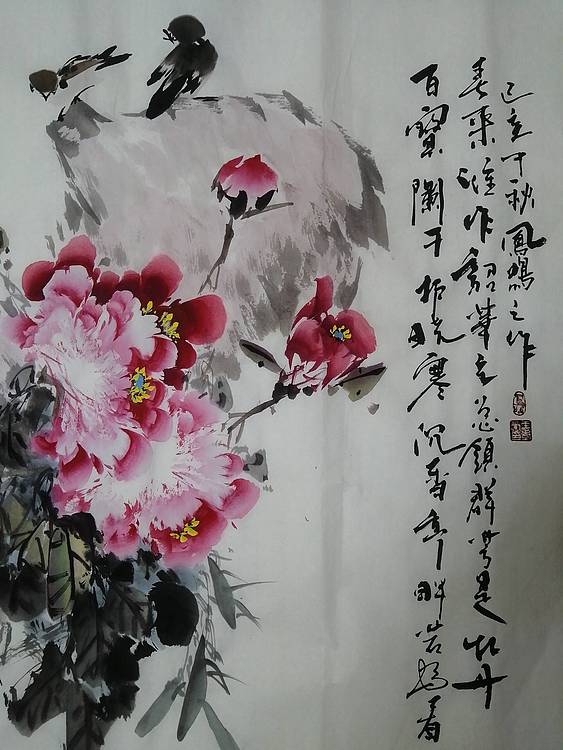 百寶闌干护晓寒沉香亭畔若為看
春來谁作韶華主总領群芳是牡丹
己亥中秋鳳鸣之作